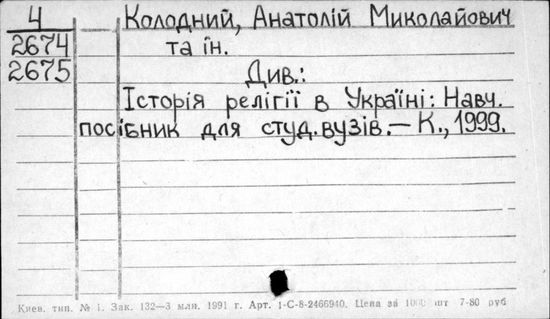 4 Колодний, Анатолій Миколайович
2674 та ін.
2675 Див.:
Історія релігії в Україні: Навч.
посібник для студ. вузів. — К., 1999.
Киев. тип. № 1. Зак. 132—3 млн. 1991 г. Арт. 1-С-8-2466940. Цена за 1000 шт 7-80 руб